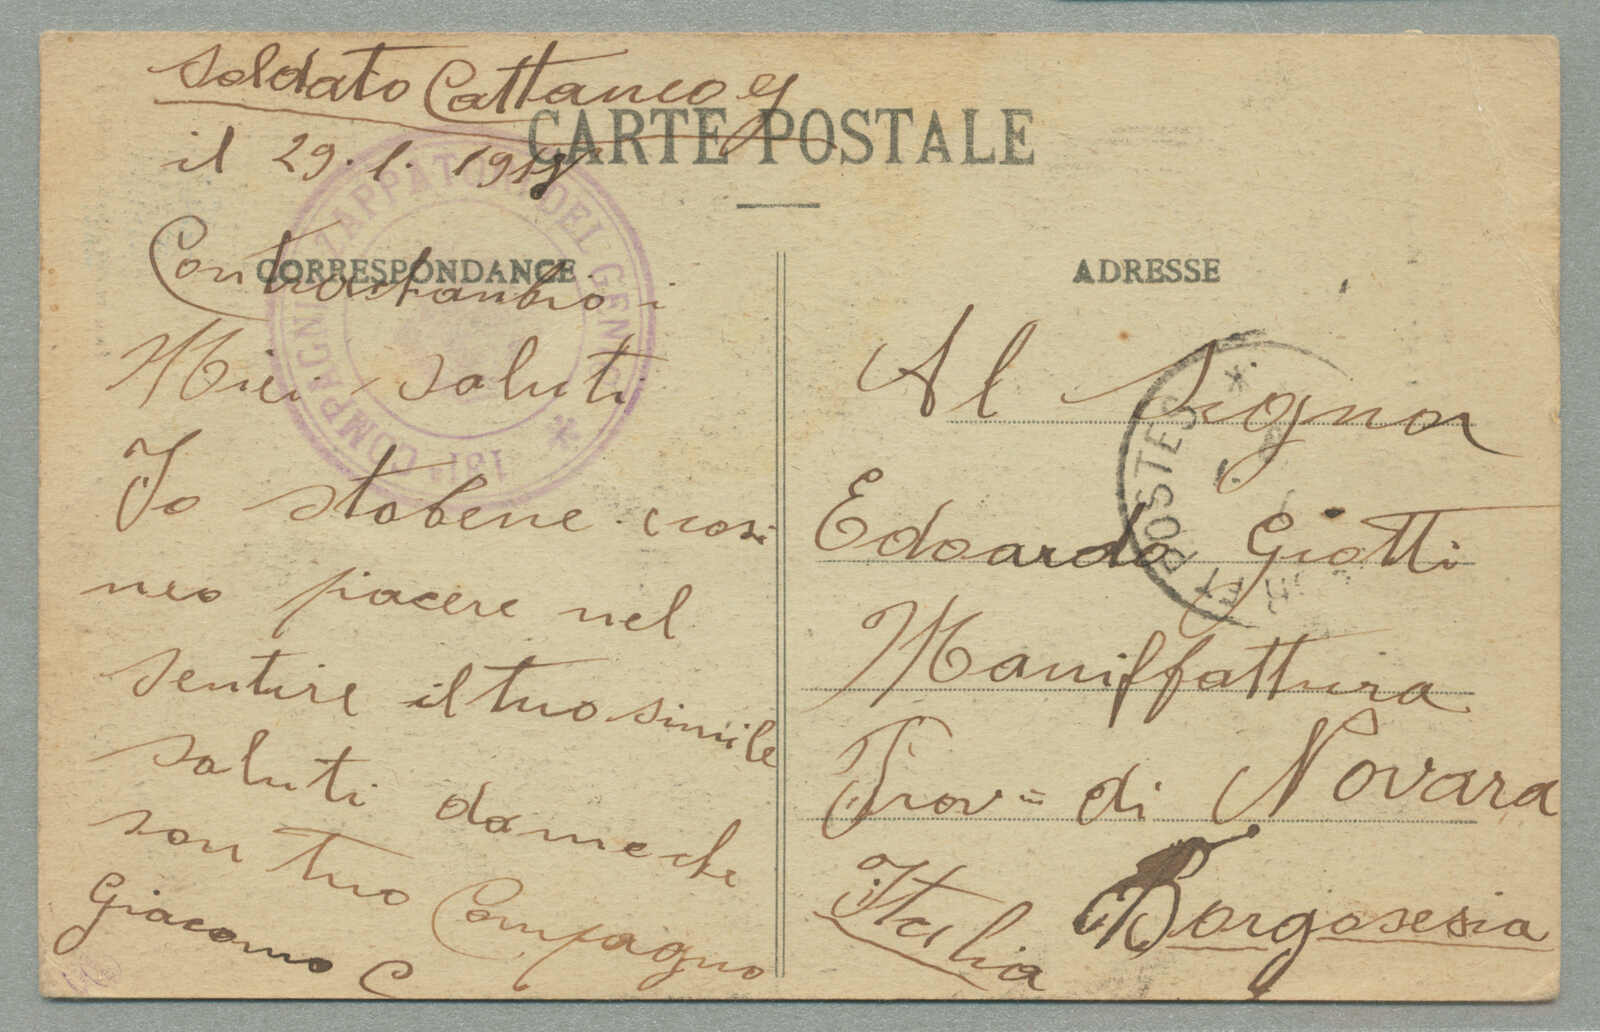 soldato Cattaneo G
il 29.1.1918
CARTE POSTALE
CORRESPONDANCE
Contracambio i
Miei saluti
Io stobene cosi
neo piacere nel
sentire il tuo simile
saluti dame che
son tuo Compagno
Giacomo C
ADRESSE
Al Signor
Edoardo Giotti
Maniffattura
Prov= di Novara
Borgosesia
Italia
COMPAGNIA ZAPPATORI DEL GENIO
POSTES